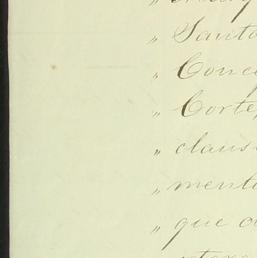 " Santo
" Conce
" Corte
" claus
" mento
" que